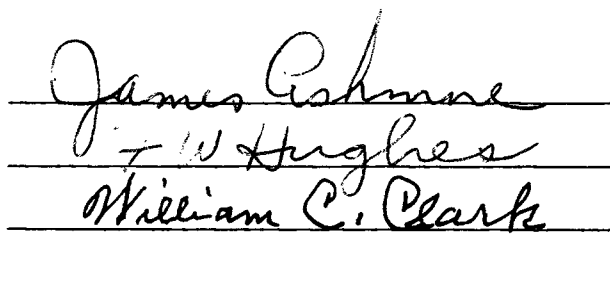 James Ashmore
T W Hughes
William C. Clark